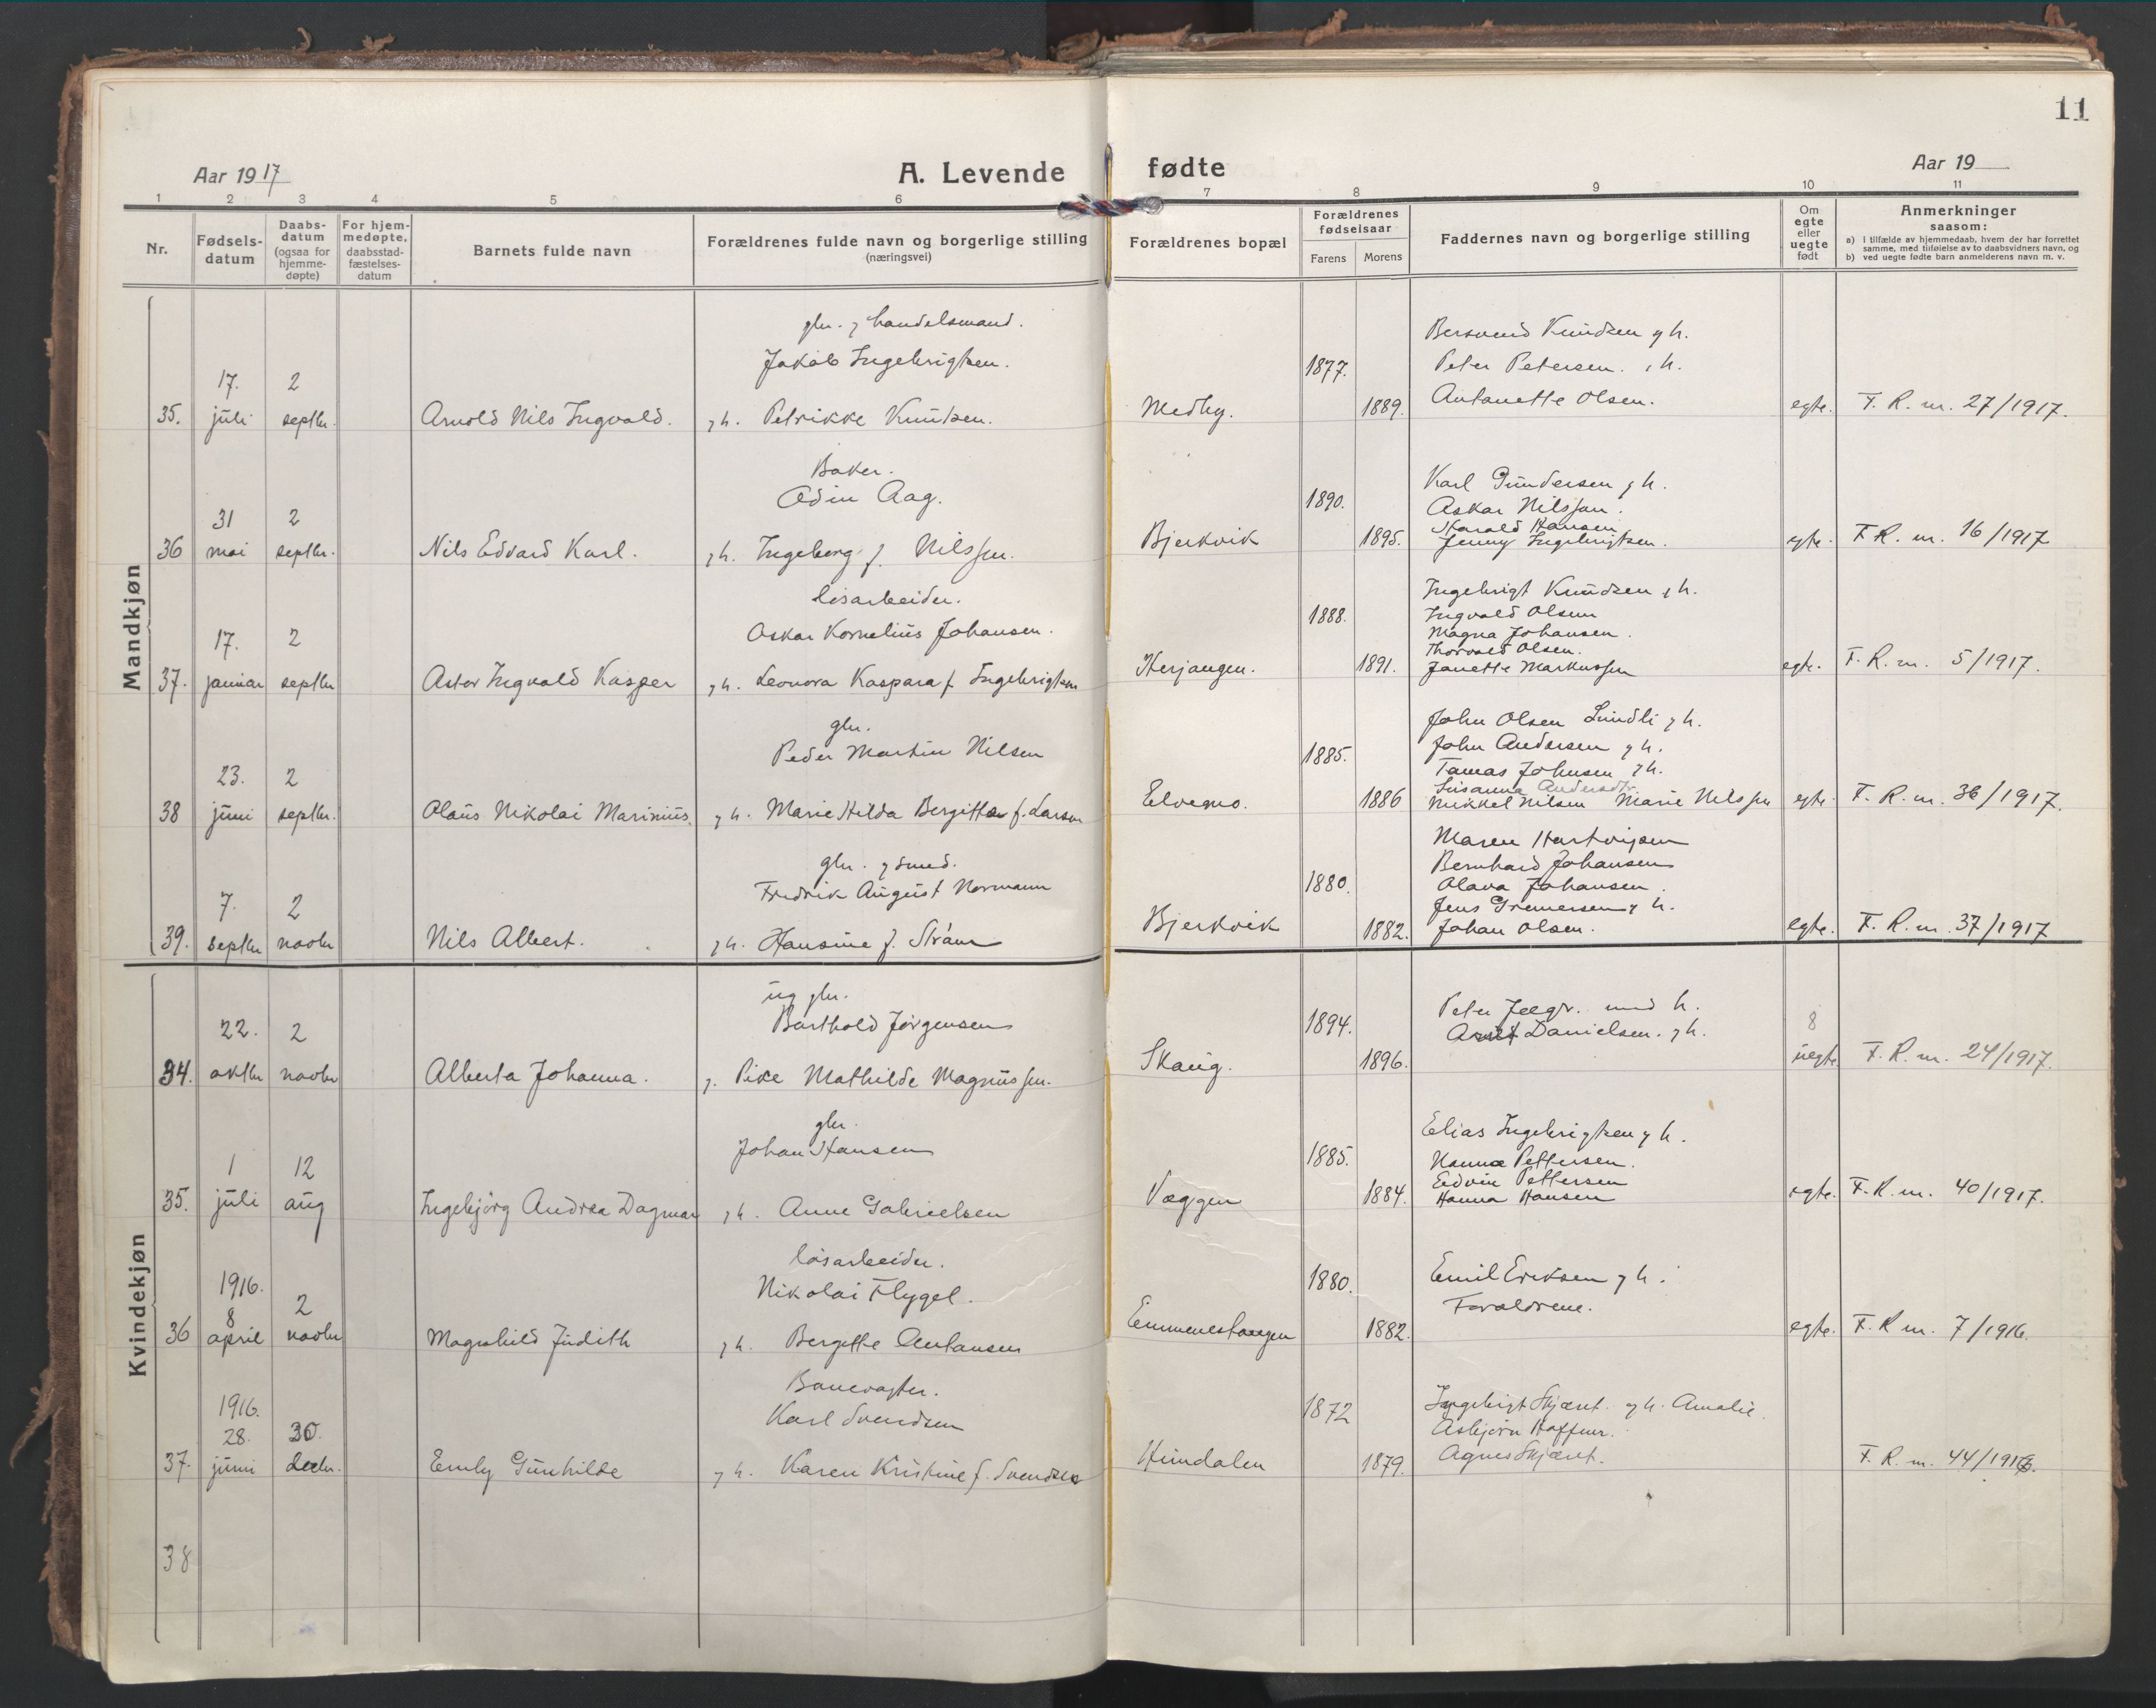 11
Aar 1917
A. Levende fødte
Aar 19
1 2 3 4 5 6 7 8 9 10 11
Nr.
Fødsels-
datum
Daabs-
datum
(ogsaa for
hjemme-
døpte)
For hjem-
medøpte,
daabsstad-
fæstelses-
datum
Barnets fulde navn
Forældrenes fulde navn og borgerlige stilling
(næringsvei)
Forældrenes bopæl
Forældrenes
fødselsaar
Farens
Morens
Faddernes navn og borgerlige stilling
Om
egte
eller
uegte
født
Anmerkninger
saasom:
a) i tilfælde av hjemmedaab, hvem der har forrettet
samme, med tilføielse av to daabsvidners navn, og
b) ved uegte fødte barn anmelderens navn m. v.
Mandkjøn
35.
17.
juli
2
septbr.
Arnold Nils Ingvald.
gbr. og handelsmand.
Jakob Ingebrigtsen.
og h. Petrikke Knutsen.
Medby.
1877.
1889.
Bersvend Knudsen og h.
Peter Petersen. og h.
Antonette Olsen.
egte.
F. R. nr. 27/1917.
36
31
mai
2
septbr.
Nils Edvard Karl.
Baker.
Odin Aag.
og h. Ingeborg f. Nilssen.
Bjerkvik
1890.
1895.
Karl Gundersen og h.
Askar Nilssen.
Harald Hansen
Jenny Ingebrigtsen.
egte.
F. R. nr. 16/1917
37.
17.
januar
2
septbr
Astor Ingvald Kasper
løsarbeider.
Oskar Kornelius Johansen.
og h. Leonora Kaspara f. Ingebrigtsen
Herjangen.
1888.
1891.
Ingebrigt Knudsen og h.
Ingvald Olsen
Magna Johansen.
Thorvald Olsen.
Janette Markussen
egte.
F. R. nr. 5/1917.
38
23.
juni
2
septbr.
Olaus Nikolai Marinius.
gbr.
Peder Martin Nilsen
og h. Marie Hilda Bergitte f. Larsen
Elvemo.
1885.
1886
John Olsen Lundli og h.
John Andersen og h.
Tomas Johnsen og h.
Susanna Andersdtr.
Mikkel Nilsen Marie Nilssen
egte.
F. R. nr. 36/1917.
39.
7.
septbr
2
novbr
Nils Albert.
gbr. og smed.
Fredrik August Normann
og h. Hansine f. Strøm
Bjerkvik
1880.
1882.
Maren Hartvigsen
Bernhard Johansen
Olava Johansen.
Jens Gremersen og h.
Johan Olsen.
egte.
F. R. nr. 37/1917
Kvindekjøn
34.
22.
oktbr
2
novbr
Alberta Johanna.
ug gbr.
Barthold Jørgensen
og Pike Mathilde Magnussen.
Skaug.
1894.
1896.
Peter Jeegr. med h.
Arnt Danielsen. og h.
8
uegte.
F. R. nr. 24/1917.
35.
1
juli
12
aug
Ingebjørg Andrea Dagmar
gbr.
Johan Hansen
og h. Anne Gabrielsen
Væggen
1885.
1884.
Elias Ingebrigtsen og h.
Hanna Pettersen.
Edvin Pettersen
Hanna Hansen
egte.
F. R. nr. 40/1917.
36
1916.
8
april
2
novbr
Magnhild Judith
løsarbeider.
Nikolai Flygel.
og h. Bergitte Antonsen
Emmenestangen
1880.
1882.
Emil Eriksen og h.
Forældrene.
egte.
F. R nr. 7/1916.
37.
1916.
28.
juni
30.
decbr.
Emly Gunhilde
Banevogter.
Karl Svendsen
og h. Karen Kristine f. Svendsen
Hundalen
1872
1879.
Ingebrigt Skjænt. og h. Amalie.
Asbjørn Hoffmr.
Agnes Skjænt.
F. R. nr. 44/1916.
38